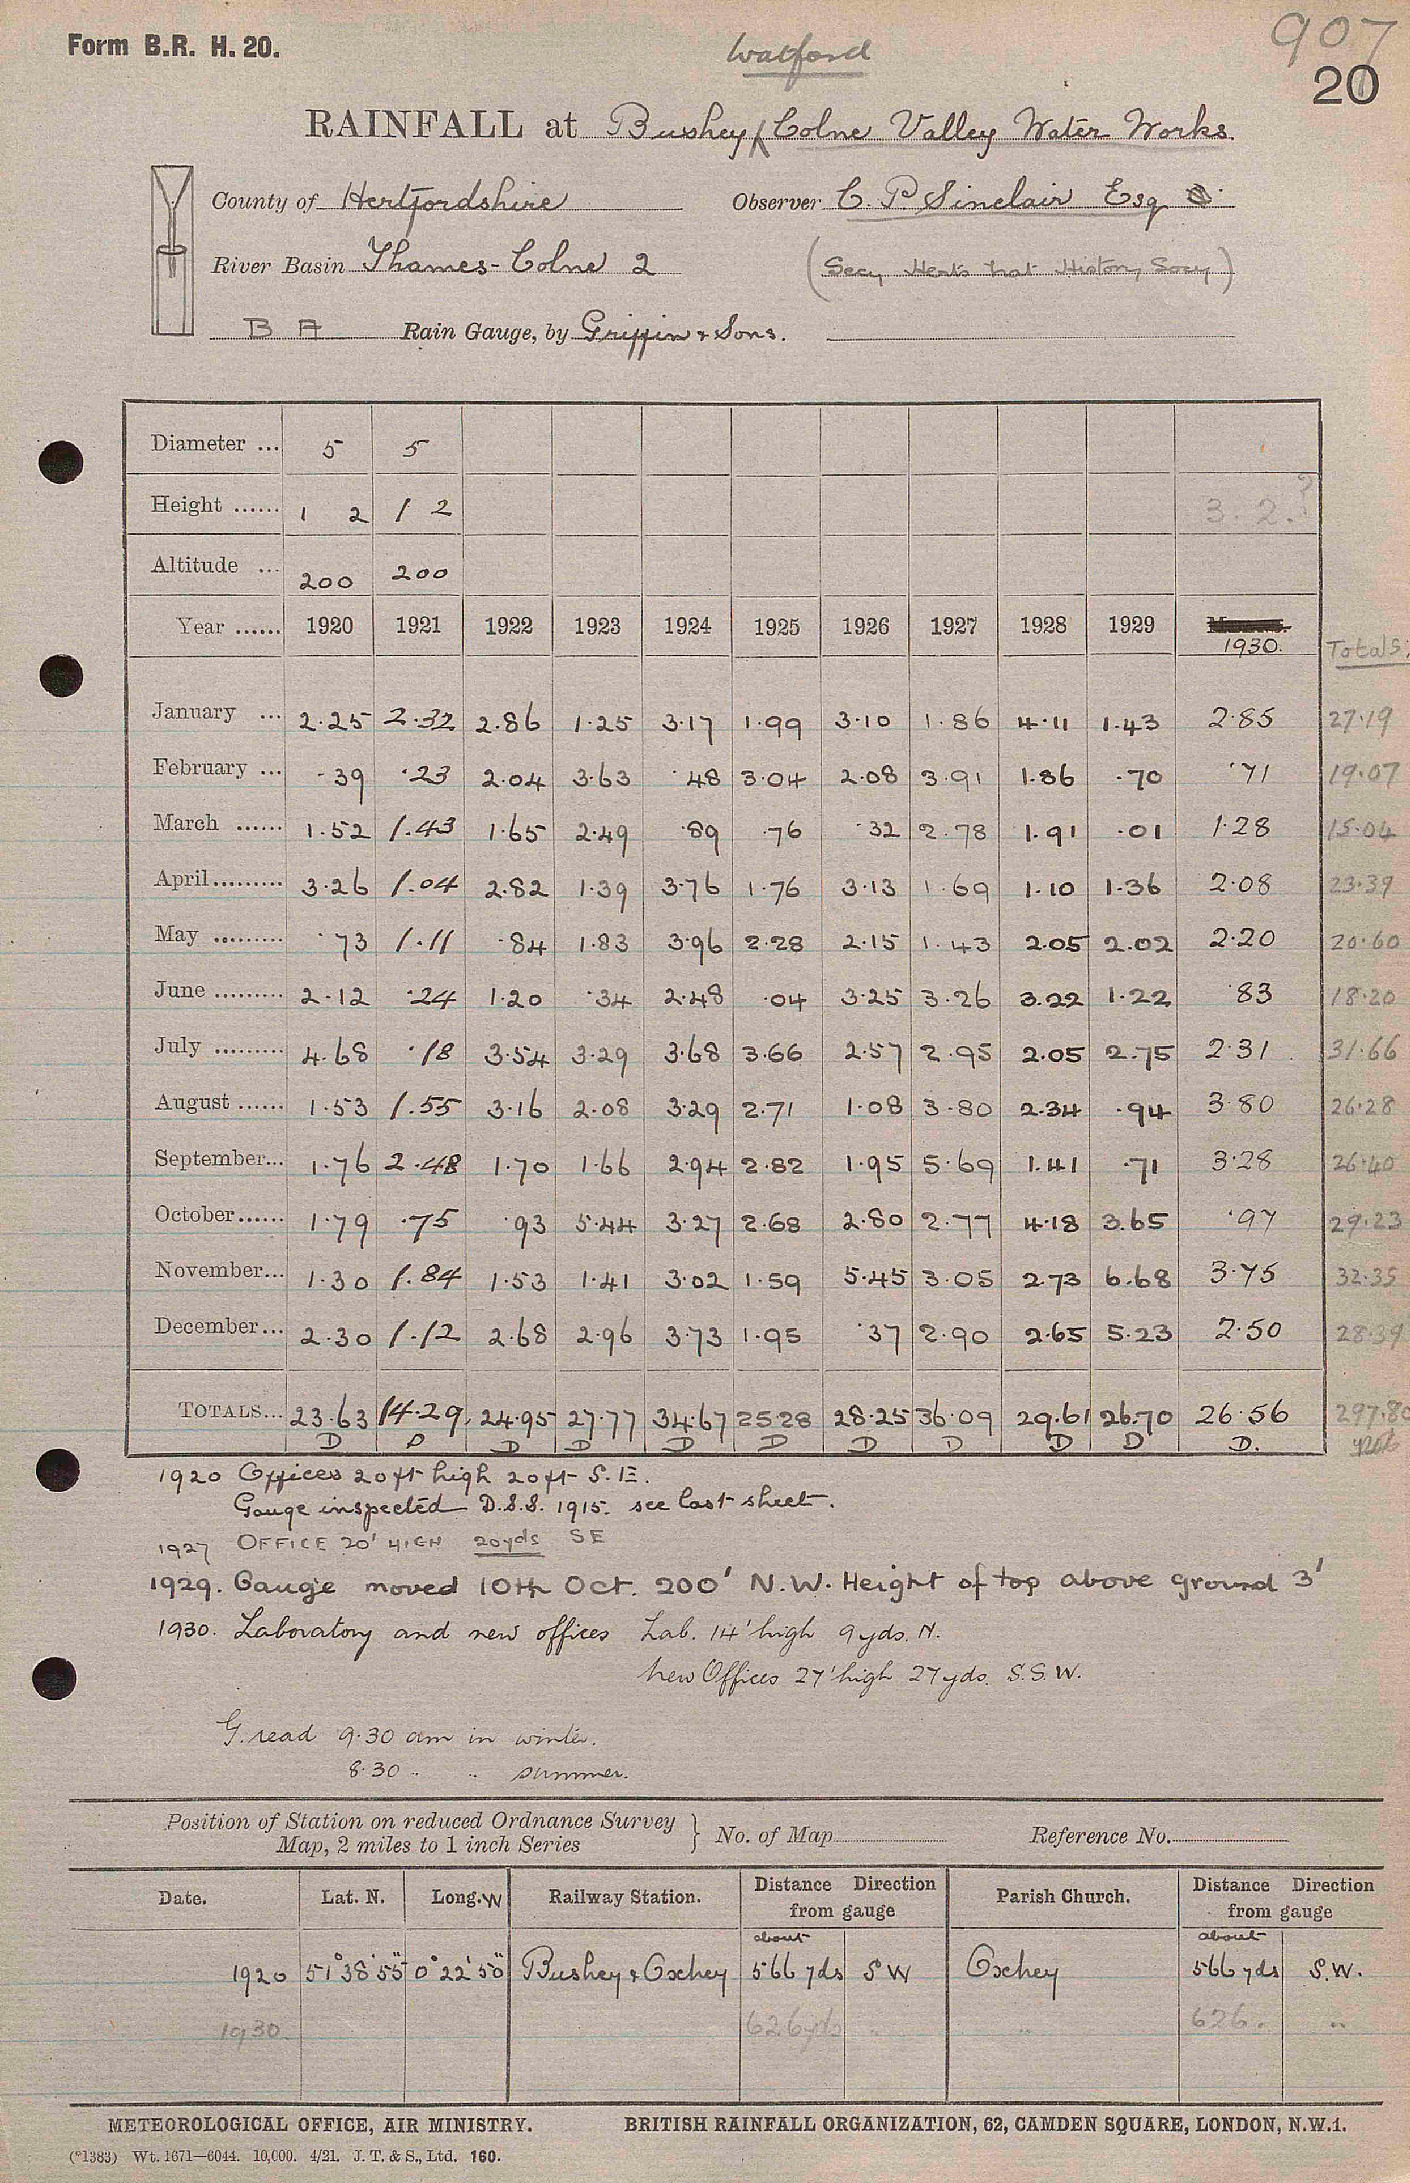 907
Form B.R. H. 20.
Watford
20
RAINFALL at Bushey, Colne Valley Water Works.
County of Hertfordshire Observer C. P. Sinclair Esq
River Basin Thames - Colne 2 (Secy Herts Nat History Socy)
B A Rain Gauge, by Griffin & Sons.
Diameter ... 5 5
Height ...... 1 2 1 2 3. 2.?
Altitude ... 200 200
Year ...... 1920 1921 1922 1923 1924 1925 1926 1927 1928 1929 1930. Totals:
January ... 2.25 2.32 2.86 1.25 3.17 1.99 3.10 1.86 4.11 1.43 2.85 27.19
February ... .39 .23 2.04 3.63 .48 3.04 2.08 3.91 1.86 .70 .71 19.07
March ...... 1.52 1.43 1.65 2.49 .89 .76 .32 2.78 1.91 .01 1.28 15.04
April......... 3.26 1.04 2.82 1.39 3.76 1.76 3.13 1.69 1.10 1.36 2.08 23.39
May ......... .73 1.11 .84 1.83 3.96 2.28 2.15 1.43 2.05 2.02 2.20 20.60
June ......... 2.12 .24 1.20 .34 2.48 .04 3.25 3.26 3.22 1.22 .83 18.20
July ......... 4.68 .18 3.54 3.29 3.68 3.66 2.57 2.95 2.05 2.75 2.31 31.66
August ...... 1.53 1.55 3.16 2.08 3.29 2.71 1.08 3.80 2.34 .94 3.80 26.28
September... 1.76 2.48 1.70 1.66 2.94 2.82 1.95 5.69 1.41 .71 3.28 26.40
October...... 1.79 .75 .93 5.44 3.27 2.68 2.80 2.77 4.18 3.65 .97 29.23
November... 1.30 1.84 1.53 1.41 3.02 1.59 5.45 3.05 2.73 6.68 3.75 32.35
December... 2.30 1.12 2.68 2.96 3.73 1.95 .37 2.90 2.65 5.23 2.50 28.39
TOTALS... 23.63 14.29 24.95 27.77 34.67 25.28 28.25 36.09 29.61 26.70 26.56 297.80
D D D D D D D D D D D.
1920 Offices 20 ft high 20 ft S.E.
Gauge inspected D.S.S. 1915. see last sheet.
1927 OFFICE 20' HIGH 20 yds SE
1929. Gauge moved 10th Oct. 200' N.W. Height of top above ground 3'
1930. Laboratory and new offices Lab. 14' high 9 yds. N.
New Offices 27' high 27 yds. S.S.W.
G. read 9.30 am in winter.
8.30 .. .. summer.
Position of Station on reduced Ordnance Survey
Map, 2 miles to 1 inch Series } No. of Map Reference No.
Date. Lat. N. Long. W Railway Station. Distance Direction from gauge Parish Church. Distance Direction from gauge
about about
1920 51°38'55" 0°22'50" Bushey & Oxhey 566 yds S W Oxhey 566 yds S.W.
1930. 626 yds " " 626. "
METEOROLOGICAL OFFICE, AIR MINISTRY. BRITISH RAINFALL ORGANIZATION, 62, CAMDEN SQUARE, LONDON, N.W.1.
(*1383) Wt. 1671—6044. 10,000. 4/21. J. T. & S., Ltd. 160.